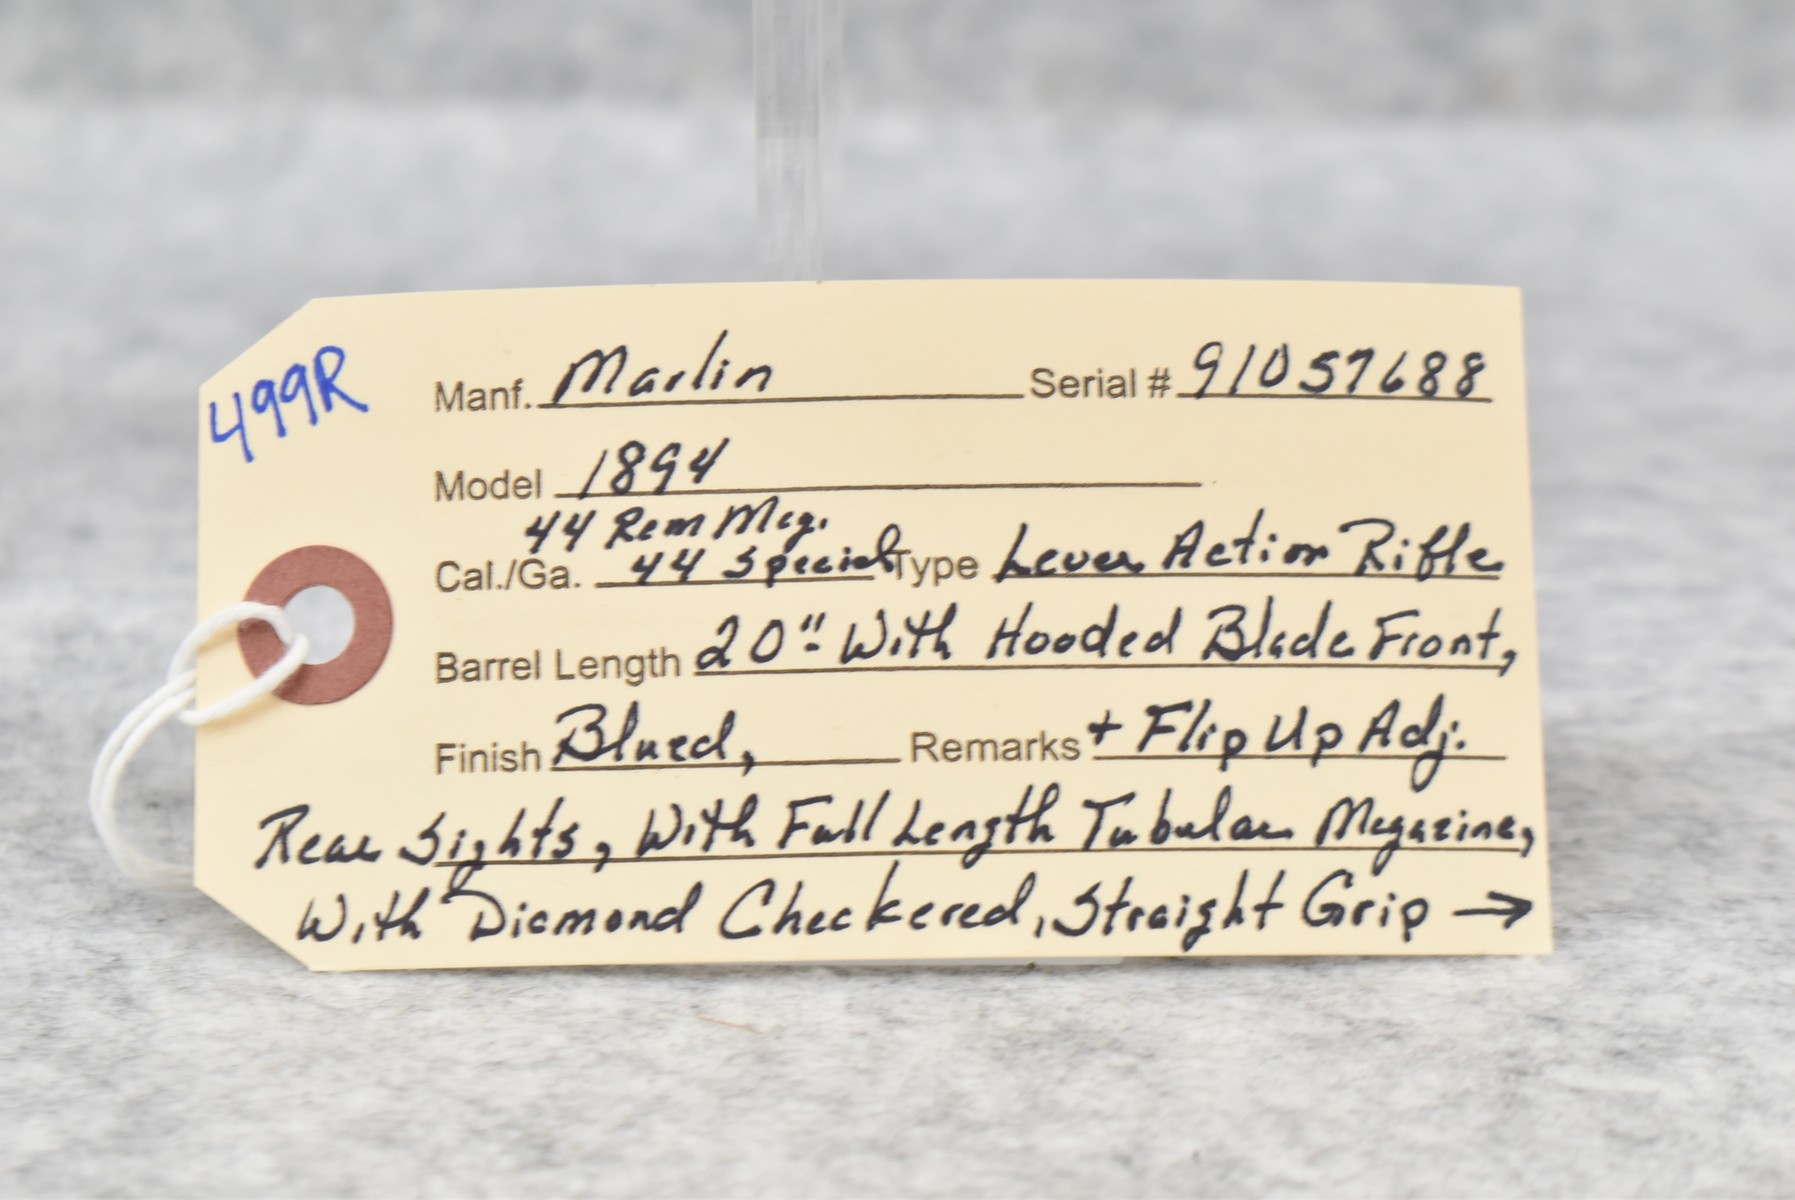 499R
Manf. Marlin Serial # 91057688
Model 1894
44 Rem Mag.
Cal./Ga. 44 Special Type Lever Action Rifle
Barrel Length 20" With Hooded Blade Front,
Finish Blued, Remarks + Flip Up Adj.
Rear Sights, With Full Length Tubular Magazine,
With Diamond Checkered, Straight Grip →